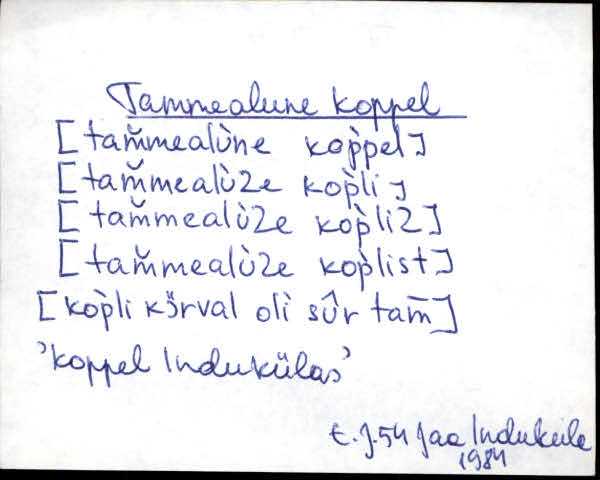 Tammealune koppel
[tam̆mealùne kop̀pel]
[tam̆mealùƨe kop̀li]
[tam̆mealùƨe kop̀liƨ]
[tam̆mealùƨe kop̀list]
[kop̀li kɜ̆rval oli sûr tam̄]
'koppel Indukülas'
E. J. 54 Jaa Induküla
1984